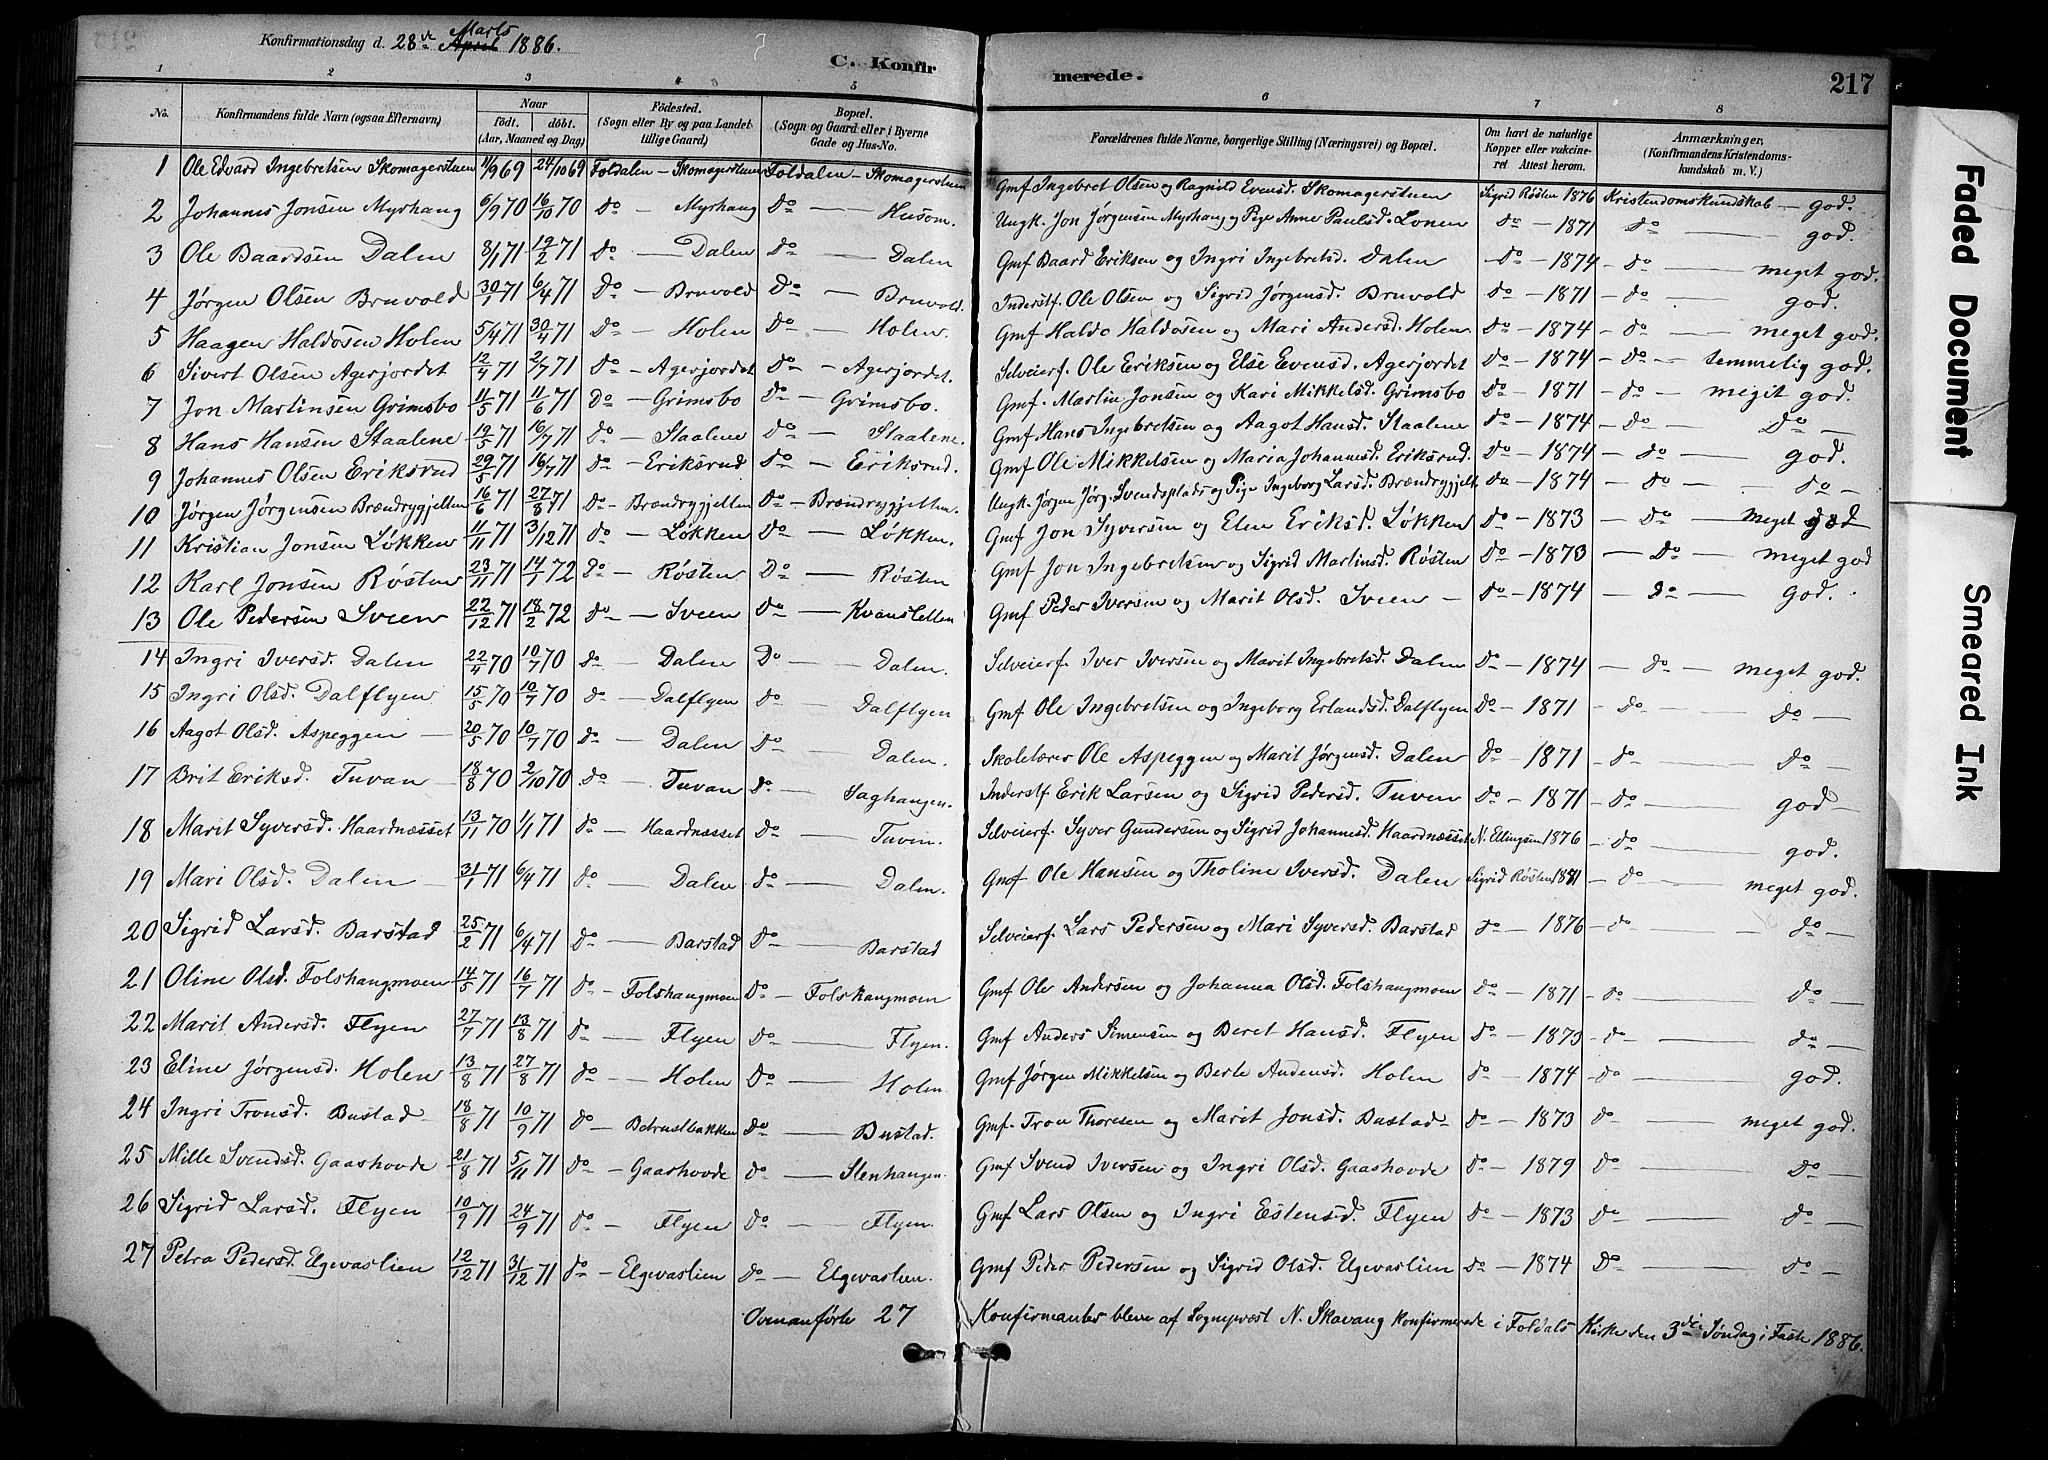 Konfirmationsdag d. 28de April Marts 1886.
C. Konfirmerede. 217
1 2 3 4 5 6 7 8
No. Konfirmandens fulde Navn (ogsaa Efternavn) Naar født, døbt. (Aar, Maaned og Dag) Fødested. (Sogn eller By og paa Landet tillige Gaard) Bopæl. (Sogn og Gaard eller i Byerne Gade og Hus-No. Forældrenes fulde Navne, borgerlige Stilling (Næringsvei) og Bopæl. Om havt de naturlige Kopper eller vakcineret Attest herom. Anmærkninger, (Konfirmandens Kristendomskundskab m. V.)
1 Ole Edvard Ingebretsen Skomagerstuen 11/9 69 24/10 69 Foldalen – Skomagerstuen Foldalen – Skomagerstuen Gmf Ingebret Olsen og Ragnild Evensd. Skomagerstuen Sigrid Røsten 1876 Kristendomskundskab – god.
2 Johannes Jonsen Myrhang 6/9 70 16/10 70 Do – Myrhang Do – Husom. Ungk. Jon Jørgensen Myrhang og Pige Anne Paulsd. Lonen Do – 1871 Do – god.
3 Ole Baardsen Dalen 8/1 71 19/2 71 Do – Dalen Do – Dalen Gmf Baard Eriksen og Ingri Ingebretsd. Dalen Do – 1874 – Do – meget god.
4 Jørgen Olsen Bruvold 30/1 71 6/4 71 Do – Bruvold Do – Bruvold. Inderstf. Ole Olsen og Sigrid Jørgensd. Bruvold Do – 1871 – Do – god.
5 Haagen Haldosen Holen 5/4 71 30/4 71 Do – Holen Do – Holen. Gmf Haldo Haldosen og Mari Andersd. Holen. Do – 1874 – Do – meget god.
6 Sivert Olsen Agerjordet 12/4 71 2/7 71 Do – Agerjordet Do – Agerjordet. Selveierf. Ole Eriksen og Else Evensd. Agerjordet Do – 1874 – Do – temmelig god.
7 Jon Martinsen Grimsbo 11/5 71 11/6 71 Do – Grimsbo Do – Grimsbo. Gmf. Martin Jonsen og Kari Mikkelsd. Grimsbo Do – 1871 – Do – meget god.
8 Hans Hansen Staalene 19/5 71 16/7 71 Do – Staalene Do – Staalene. Gmf Hans Ingebretsen og Aagot Hansd. Staalene Do – 1874 – Do – Do –
9 Johannes Olsen Eriksrud 29/5 71 16/7 71 Do – Eriksrud Do – Eriksrud. Gmf Ole Mikkelsen og Maria Johannesd. Eriksrud. Do – 1874 – Do – god.
10 Jørgen Jørgensen Brændryggjelten 16/6 71 27/8 71 Do – Brændryggjelten Do – Brændryggjelten. Ungk. Jørgen Jørg. Svendsplads og Pige Ingeborg Larsd. Brændryggjelt. Do – 1874 – Do – Do –
11 Kristian Jonsen Løkken 11/11 71 3/12 71 Do – Løkken Do – Løkken. Gmf Jon Syversen og Elen Eriksd. Løkken Do – 1873 – Do – meget god
12 Karl Jonsen Røsten 23/11 71 14/1 72 Do – Røsten Do – Røsten Gmf Jon Ingebretsen og Sigrid Martinsd. Røsten Do – 1873 – Do – meget god
13 Ole Pedersen Sveen 22/12 71 18/2 72 Do – Sveen Do – Kvansletten Gmf Peder Iversen og Marit Olsd. Sveen – Do – 1874 – Do – god.
14 Ingri Iversd. Dalen 22/4 70 10/7 70 Do – Dalen Do – Dalen. Selveierf. Iver Iversen og Marit Ingebretsd. Dalen Do – 1874 – Do – meget god.
15 Ingri Olsd. Dalflyen 15/5 70 10/7 70 Do – Dalflyen Do – Dalflyen Gmf Ole Ingebretsen og Ingeborg Erlandsd. Dalflyen Do – 1871 – Do – Do –
16 Aagot Olsd. Aspeggen 20/5 70 10/7 70 Do – Dalen Do – Dalen. Skolelærer Ole Aspeggen og Marit Jørgensd. Dalen Do – 1871 – Do – Do –
17 Brit Eriksd. Tuvan – 18/8 70 2/10 70 Do – Tuvan Do – Saghangen. Inderstf Erik Larsen og Sigrid Pedersd. Tuven Do – 1871 – Do – god
18 Marit Syversd. Haardnæsset 13/11 70 1/1 71 Do – Haardnæsset Do – Tuven. Selveierf. Syver Gundersen og Sigrid Johannesd. Haardnæsset N. Ellingsen 1876 – Do – god.
19 Mari Olsd. Dalen 31/1 71 6/4 71 Do – Dalen Do – Dalen. Gmf Ole Hansen og Tholine Iversd. Dalen Sigrid Røsten 1881 – Do – meget god.
20 Sigrid Larsd. Barstad 25/2 71 6/4 71 Do – Barstad Do – Barstad Selveierf. Lars Pedersen og Mari Syversd. Barstad Do – 1876 – Do – Do –
21 Oline Olsd. Folshangmoen 14/5 71 16/7 71 Do – Folshangmoen Do – Folshangmoen Gmf Ole Andersen og Johanna Olsd. Folshangmoen Do – 1871 – Do – Do –
22 Marit Andersd. Flyen 27/7 71 13/8 71 Do – Flyen Do – Flyen. Gmf Anders Simensen og Beret Hansd. Flyen Do – 1873 – Do – Do –
23 Eline Jørgensd. Holen 13/8 71 27/8 71 Do – Holen Do – Holen Gmf Jørgen Mikkelsen og Berte Andersd. Holen Do – 1874 – Do – god.
24 Ingri Tronsd. Bustad – 18/8 71 10/9 71 Do – Do – Bustad. Gmf. Tron Thoresen og Marit Jonsd. Bustad – Do – 1873 Do – meget god.
25 Mille Svendsd. Gaashovde 21/8 71 5/11 71 Do – Gaashovde Do – Stenhangen. Gmf Svend Iversen og Ingri Olsd. Gaashovde Do – 1879 Do – Do –
26 Sigrid Larsd. Flyen 10/9 71 24/9 71 Do – Flyen Do – Flyen. Gmf Lars Olsen og Ingri Estensd. Flyen Do – 1873 Do – Do –
27 Petra Pedersd. Elgevaslien 12/12 71 31/12 71 Do – Elgevaslien Do – Elgevaslien. Gmf Peder Pedersen og Sigrid Olsd. Elgevaslien Do – 1874 Do – Do –
Ovenanførte 27 Konfirmanter bleve af Sogneprest N. Skavang konfirmerede i Foldals Kirke den 3die Søndag i Faste 1886.
Faded Document
Smeared Ink